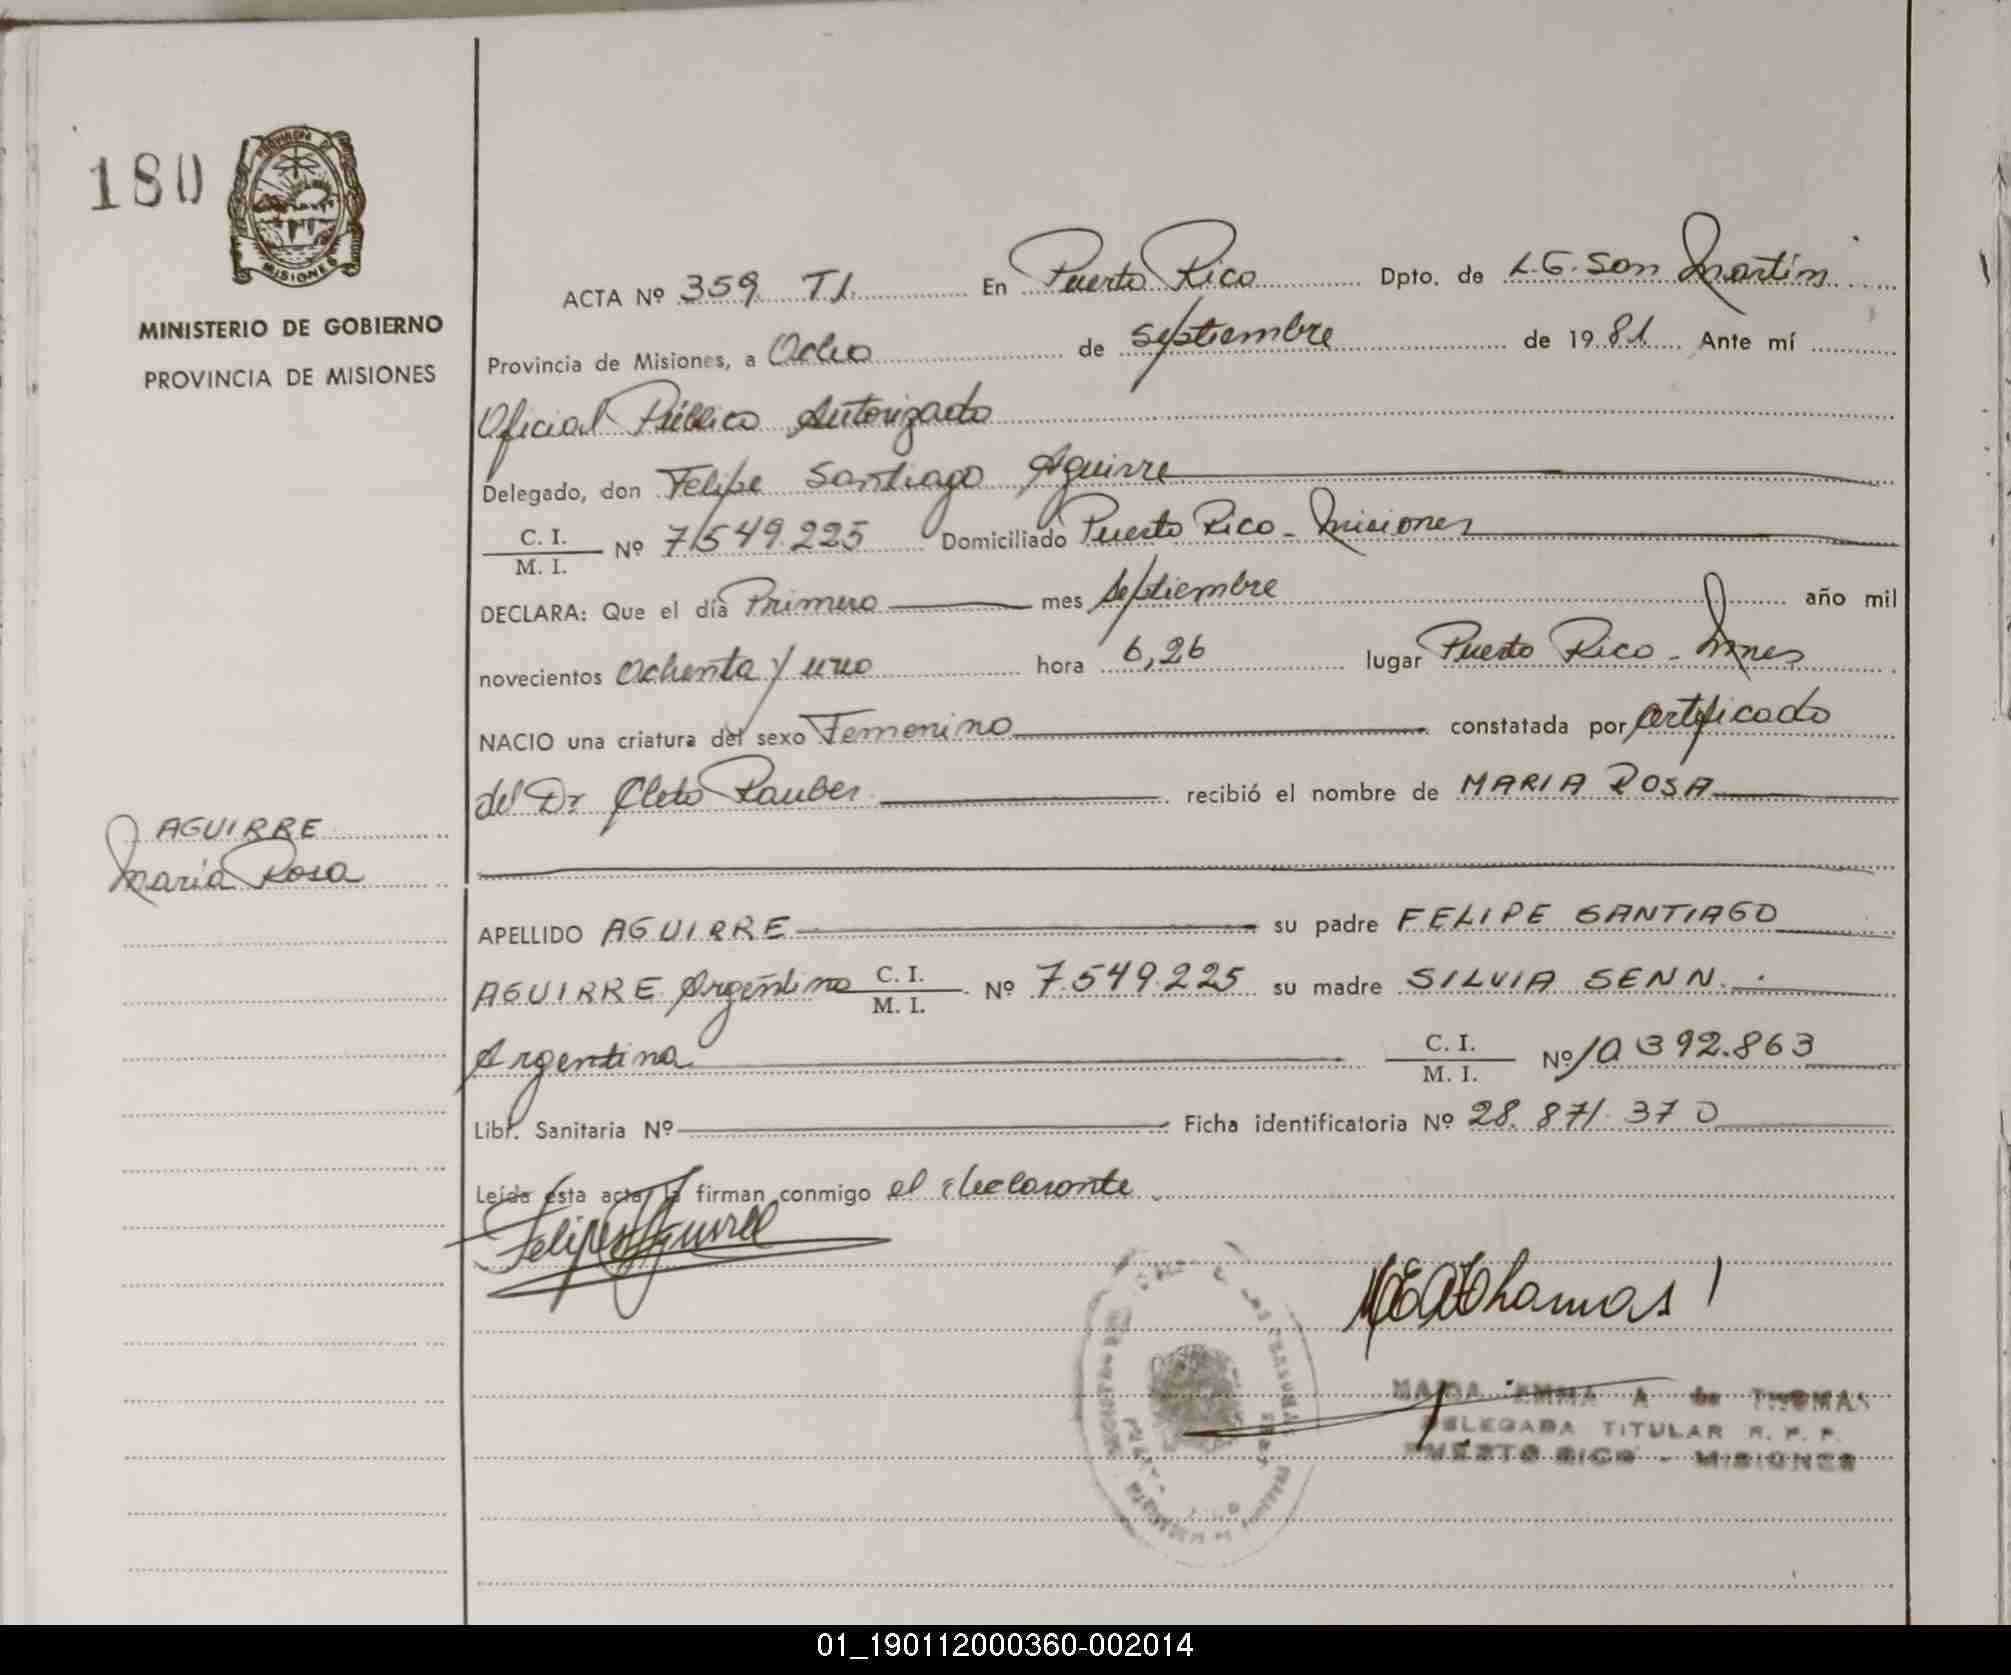 180
PROVINCIA DE
MISIONES
MINISTERIO DE GOBIERNO
PROVINCIA DE MISIONES
AGUIRRE
Maria Rosa
ACTA Nº 359 T1. En Puerto Rico Dpto. de L.G. San Martín
Provincia de Misiones, a Ocho de Septiembre de 1981 Ante mí
Oficial Público Autorizado
Delegado, don Felipe Santiago Aguirre
C. I.
M. I. Nº 7.549.225 Domiciliado Puerto Rico - Misiones
DECLARA: Que el día Primero mes Septiembre año mil
novecientos Ochenta y uno hora 6,26 lugar Puerto Rico - Mnes
NACIO una criatura del sexo Femenino constatada por Certificado
del Dr Cleto Rauber recibió el nombre de MARIA ROSA
APELLIDO AGUIRRE su padre FELIPE SANTIAGO
AGUIRRE Argentino C. I. M. I. Nº 7.549.225 su madre SILVIA SENN.
Argentina C. I. M. I. Nº 10.392.863
Libr. Sanitaria Nº Ficha identificatoria Nº 28.871.370
Leída esta acta, la firman conmigo el declarante
Felipe S Aguirre
MEAThomas
MARIA EMMA A de THOMAS
DELEGADA TITULAR R. P. P.
PUERTO RICO - MISIONES
01_190112000360-002014